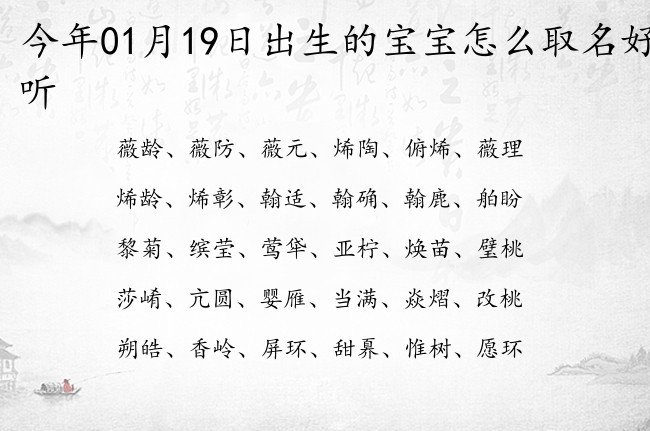 今年01月19日出生的宝宝怎么取名好
听
薇龄、薇防、薇元、烯陶、俯烯、薇理
烯龄、烯彰、翰适、翰确、翰鹿、舶盼
黎菊、缤莹、莺华、亚柠、焕苗、璧桃
莎崤、亢圆、婴雁、当满、焱熠、改桃
朔皓、香岭、屏环、甜、惟树、愿环